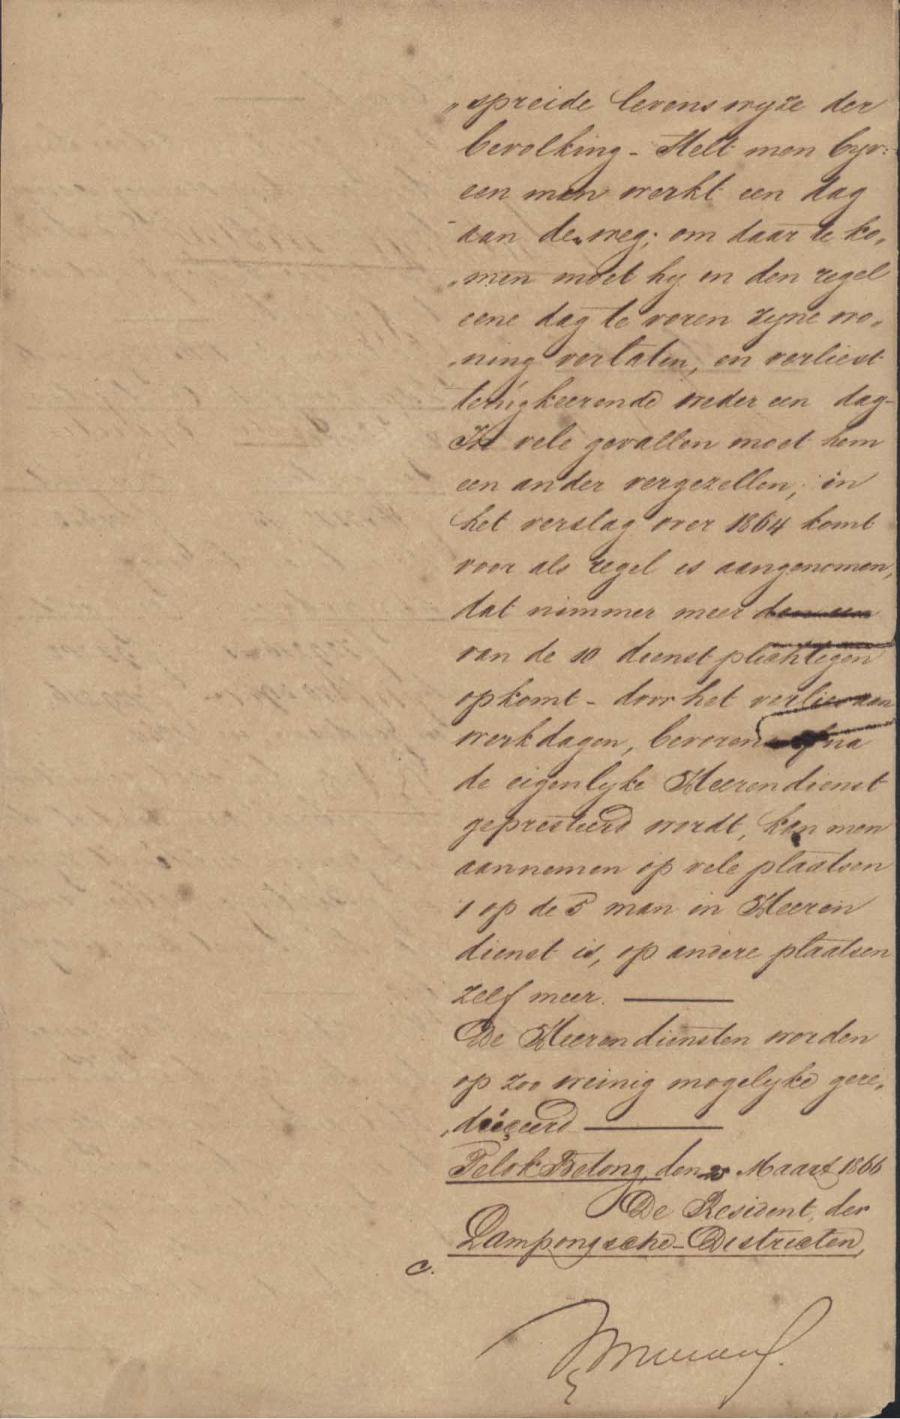 „spreide levens wyze der
bevolking - Stelt men byv:
een man werkt een dag
aan de weg; om daar te ko„
„men moet hy in den regel
eene dag te voren zyne wo„
„ning verlaten, en verliest
terugkeerende weder een dag -
In vele gevallen moet hem
een ander vergezellen; in
het verslag over 1864 komt
voor als regel is aangenomen,
dat nimmer meer dan een
van de 10 dienstplichtigen
opkomt - door het verlies aan
werkdagen, bevorens of na
de eigenlyke Heerendienst
gepresteerd wordt, kan men
aannemen op vele plaatsen
1 op de 5 man in Heeren
dienst is, op andere plaatsen
zelf meer.
De Heerendiensten worden
op zoo weinig mogelyke gere„
„duceerd
Telok Betong, den Maart 1866
De Resident der
Lampongsche-Districten,
C.